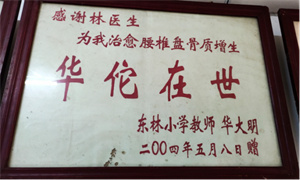 感谢林医生
为我治愈腰椎盘骨质增生
华佗在世
东林小学教师 华大明
二00四年五月八日赠